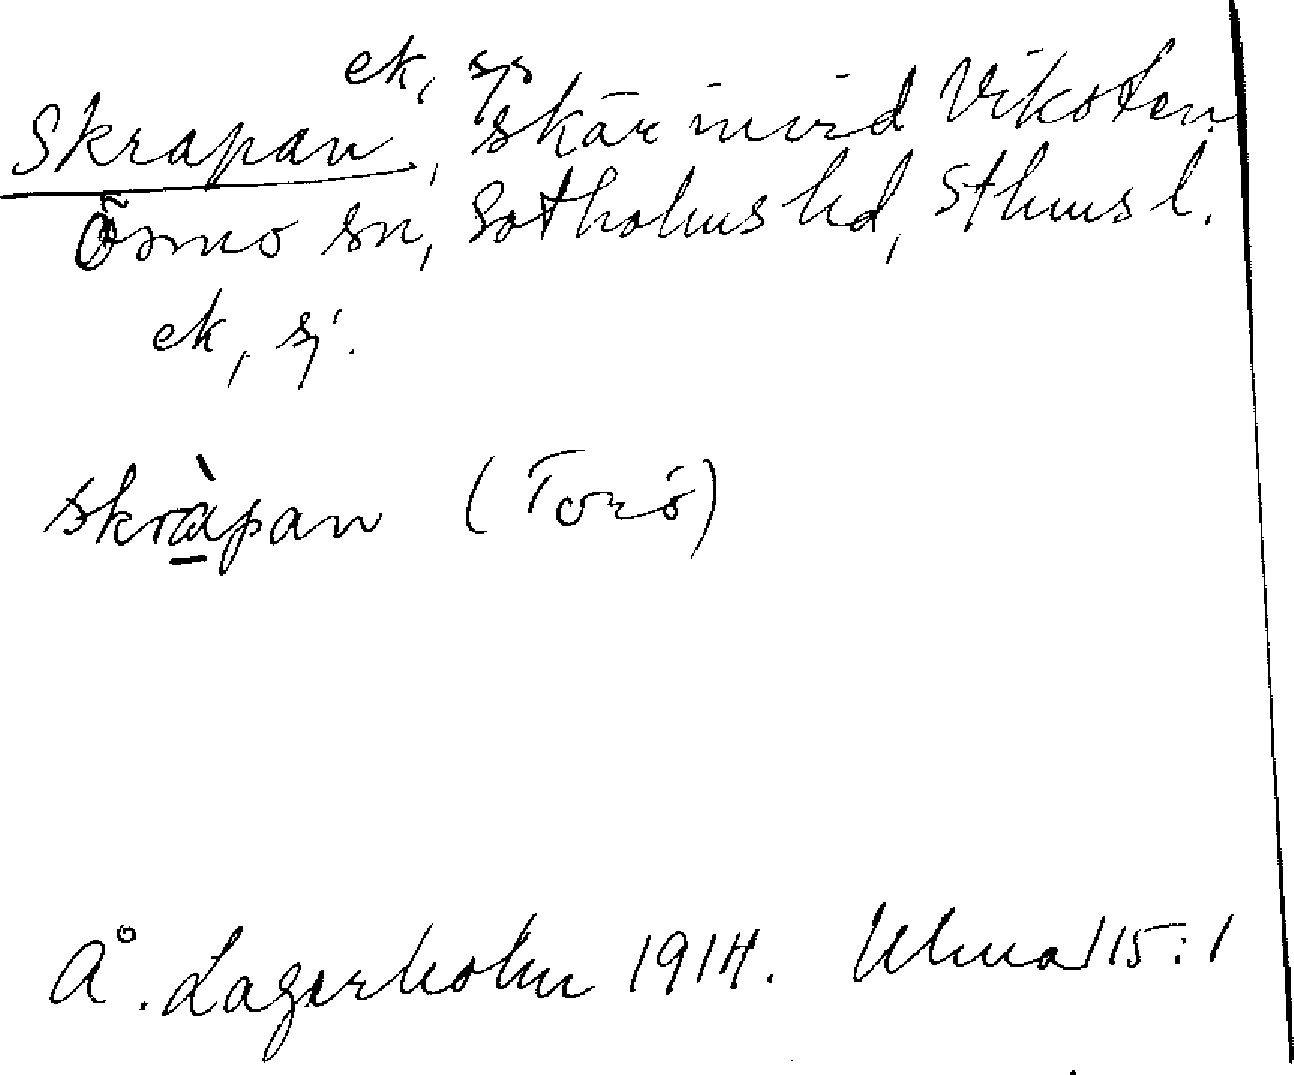 ek, sp
Skrapan, skär invid Vikoten
Ösmo sn, Sotholms hd, Sthms l.
ek, sj.
skràpan (Torö)
Å. Lagerholm 1914. Ulma 115:1